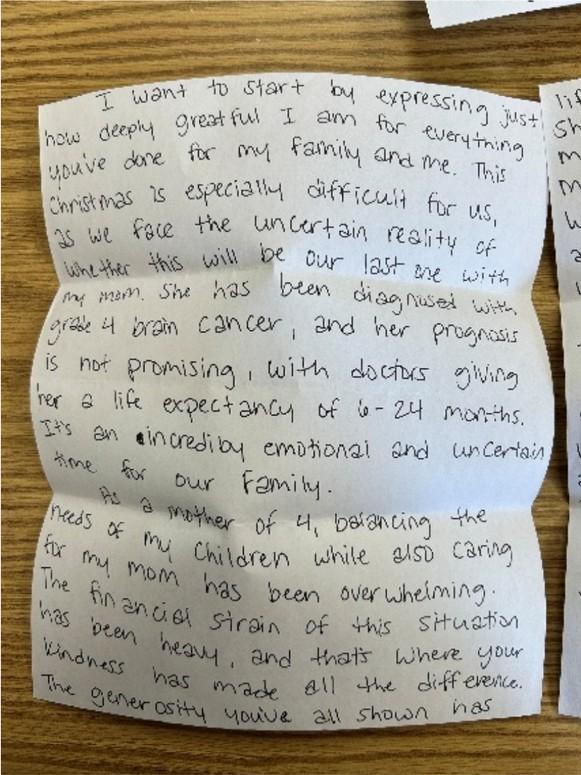 I want to start by expressing just
how deeply greatful I am for everything
you've done for my family and me. This
Christmas is especially difficult for us,
as we face the uncertain reality of
whether this will be our last one with
my mom. She has been diagnosed with
grade 4 brain cancer, and her prognosis
is not promising, with doctors giving
her a life expectancy of 6-24 months.
It's an incrediby emotional and uncertain
time for our family.
As a mother of 4, balancing the
needs of my children while also caring
for my mom has been overwhelming.
The financial strain of this situation
has been heavy, and that's where your
kindness has made all the difference.
The generosity you've all shown has